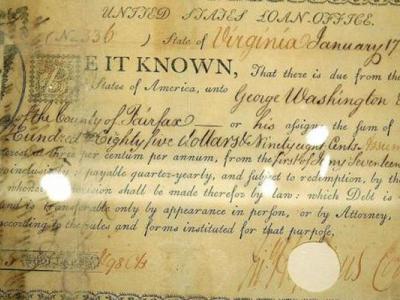 UNITED STATES LOAN-OFFICE.
(No. 336 ) State of Virginia January 17
BE IT KNOWN, That there is due from the
States of America, unto George Washington E
of the County of Fairfax — or his assigns the sum of
Hundred Eighty five Dollars & Ninety eight Cents
at three per centum per annum, from the first of Seventeen
inclusively: payable quarter-yearly, and subject to redemption, by the
whenever provision shall be made therefor by law: which Debt is
and is transferable only by appearance in person, or by Attorney,
according to the rules and forms instituted for that purpose.
DOLLARS 98 Cts